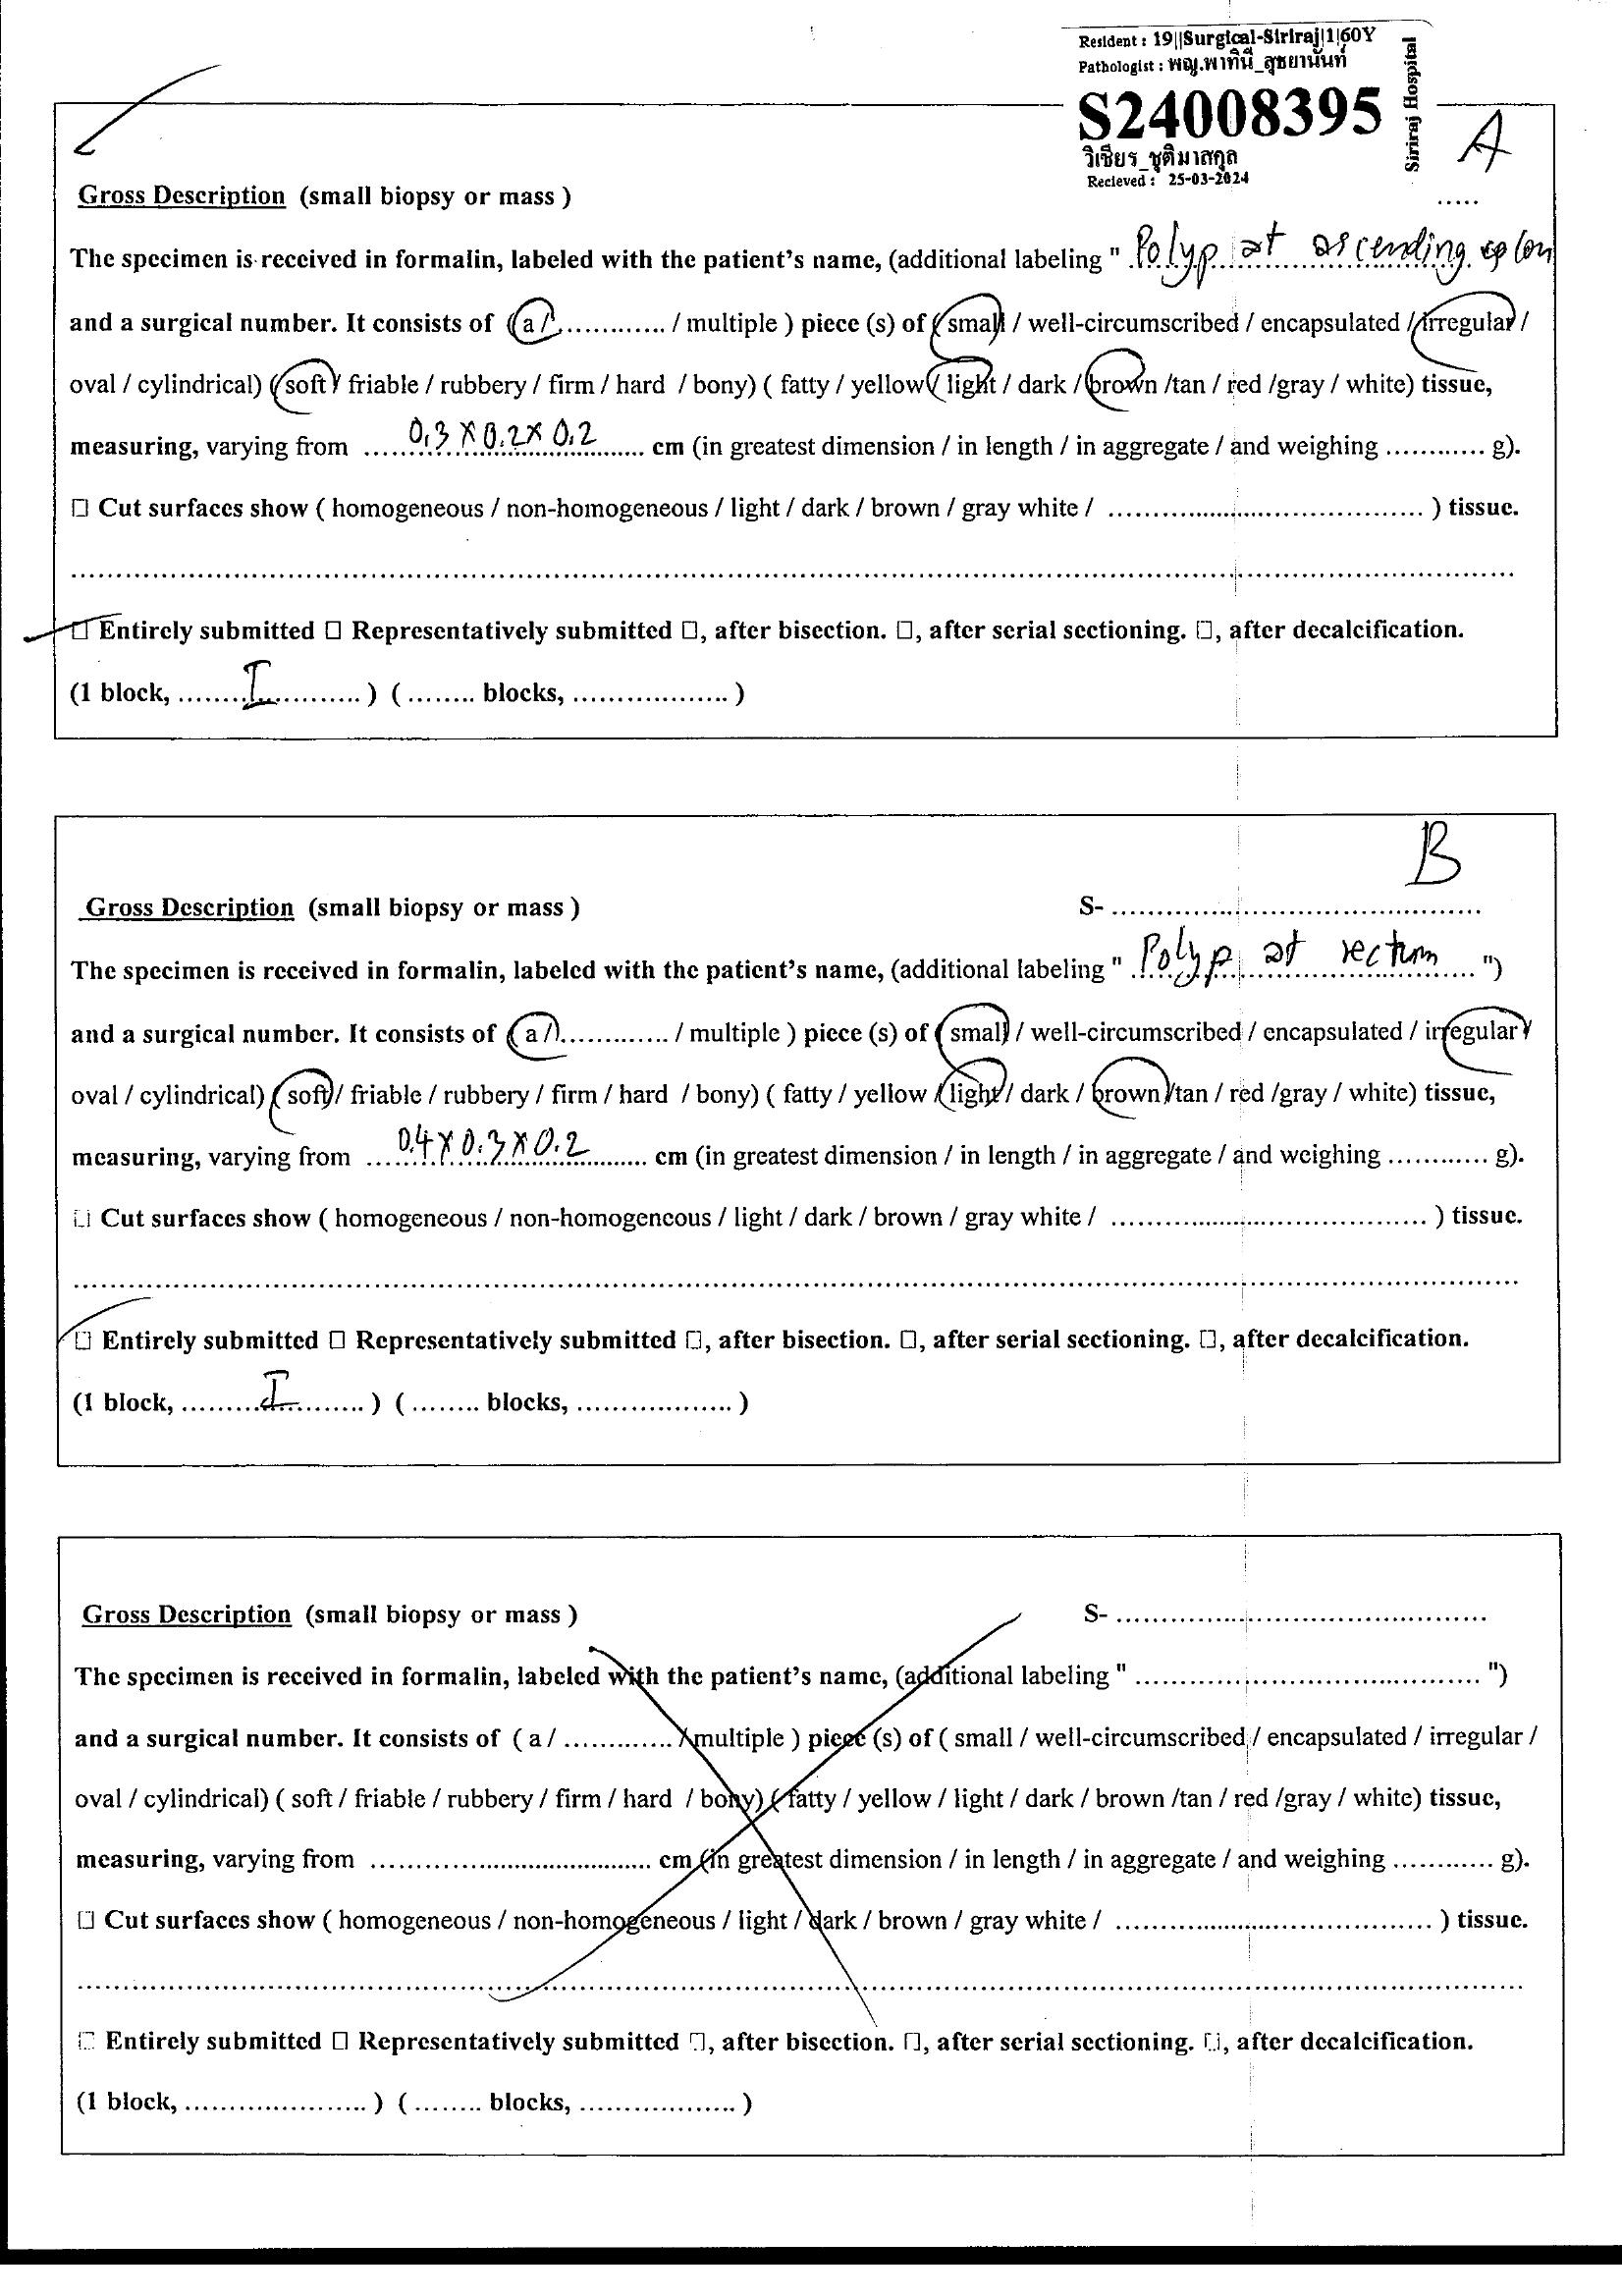 Resident : 19||Surgical-Siriraj|1|60Y
Pathologist : พญ.พาทินี_สุชยานันท์
S24008395
Siriraj Hospital
วิเชียร_ชุติมาสกุล
Recieved : 25-03-2024
A
Gross Description (small biopsy or mass )
.....
The specimen is received in formalin, labeled with the patient's name, (additional labeling " Polyp at ascending colon
and a surgical number. It consists of (a /............. / multiple ) piece (s) of ( small / well-circumscribed / encapsulated / irregular /
oval / cylindrical) ( soft / friable / rubbery / firm / hard / bony) ( fatty / yellow / light / dark / brown /tan / red /gray / white) tissue,
measuring, varying from 0.3 x 0.2 x 0.2 cm (in greatest dimension / in length / in aggregate / and weighing ............ g).
☐ Cut surfaces show ( homogeneous / non-homogeneous / light / dark / brown / gray white / .................................... ) tissue.
☐ Entirely submitted ☐ Representatively submitted ☐, after bisection. ☐, after serial sectioning. ☐, after decalcification.
(1 block, ........I........... ) ( ........ blocks, .................. )
B
Gross Description (small biopsy or mass )
S- ..........................................
The specimen is received in formalin, labeled with the patient's name, (additional labeling " Polyp at rectum ")
and a surgical number. It consists of ( a /............. / multiple ) piece (s) of ( small / well-circumscribed / encapsulated / irregular /
oval / cylindrical) ( soft / friable / rubbery / firm / hard / bony) ( fatty / yellow / light / dark / brown /tan / red /gray / white) tissue,
measuring, varying from 0.4 x 0.3 x 0.2 cm (in greatest dimension / in length / in aggregate / and weighing ............ g).
☐ Cut surfaces show ( homogeneous / non-homogeneous / light / dark / brown / gray white / .................................... ) tissue.
☐ Entirely submitted ☐ Representatively submitted ☐, after bisection. ☐, after serial sectioning. ☐, after decalcification.
(1 block, .........I.......... ) ( ........ blocks, .................. )
Gross Description (small biopsy or mass )
S- ..........................................
The specimen is received in formalin, labeled with the patient's name, (additional labeling " ....................................... ")
and a surgical number. It consists of ( a / ............. / multiple ) piece (s) of ( small / well-circumscribed / encapsulated / irregular /
oval / cylindrical) ( soft / friable / rubbery / firm / hard / bony) ( fatty / yellow / light / dark / brown /tan / red /gray / white) tissue,
measuring, varying from ................................ cm (in greatest dimension / in length / in aggregate / and weighing ............ g).
☐ Cut surfaces show ( homogeneous / non-homogeneous / light / dark / brown / gray white / .................................... ) tissue.
☐ Entirely submitted ☐ Representatively submitted ☐, after bisection. ☐, after serial sectioning. ☐, after decalcification.
(1 block, ..................... ) ( ........ blocks, .................. )